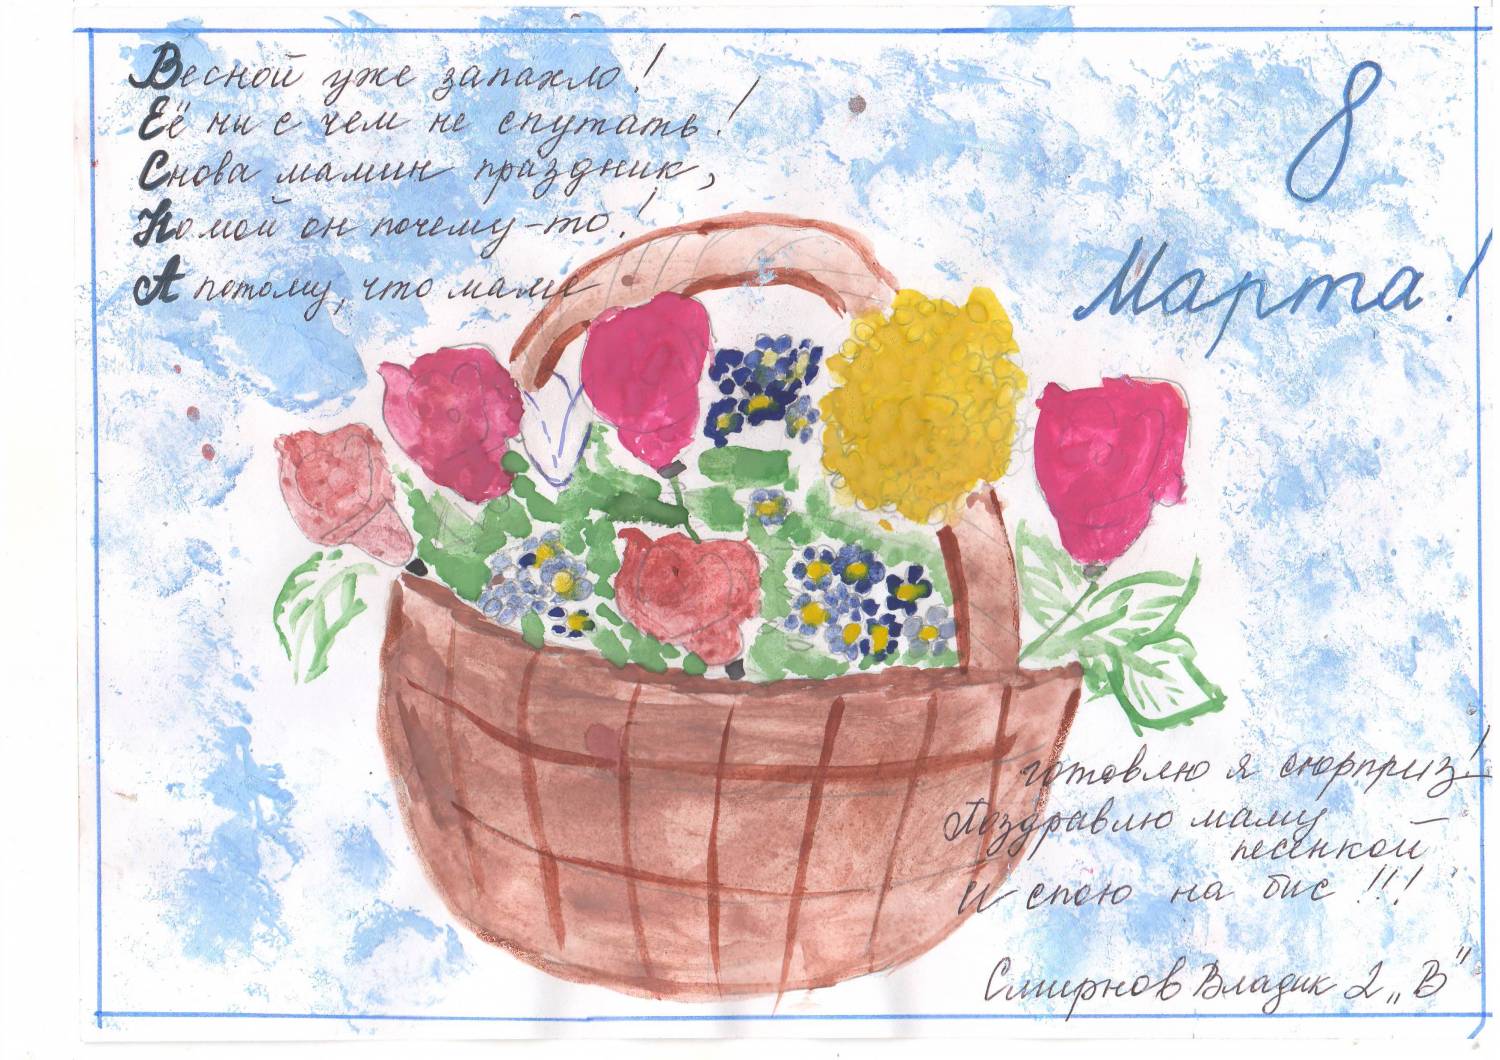 Весной уже запахло!
Её ни с чем не спутать!
Снова мамин праздник,
Но мой он почему-то!
А потому, что маме
8
Марта!
готовлю я сюрприз!
Поздравлю маму
песенкой
И спою на бис!!!
Смирнов Владик 2 „В"